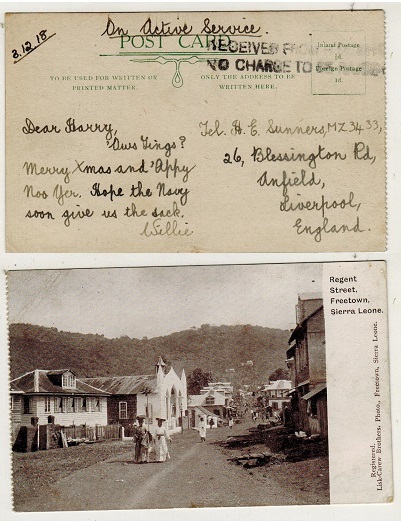 3.12.18
On Active Service.
POST CARD
RECEIVED FROM
NO CHARGE TO BE
Inland Postage
½d.
Foreign Postage
1d.
TO BE USED FOR WRITTEN OR
PRINTED MATTER.
ONLY THE ADDRESS TO BE
WRITTEN HERE.
Dear Harry,
'Ows Tings?
Merry Xmas and 'Appy
Noo Yer. Hope the Navy
soon give us the sack.
Willie
Tel. H. E. Sunners, MZ 3433,
26, Blessington Rd,
Anfield,
Liverpool,
England.
Regent
Street,
Freetown,
Sierra Leone.
Registered.
Lisk-Carew Brothers, Photo., Freetown, Sierra Leone.